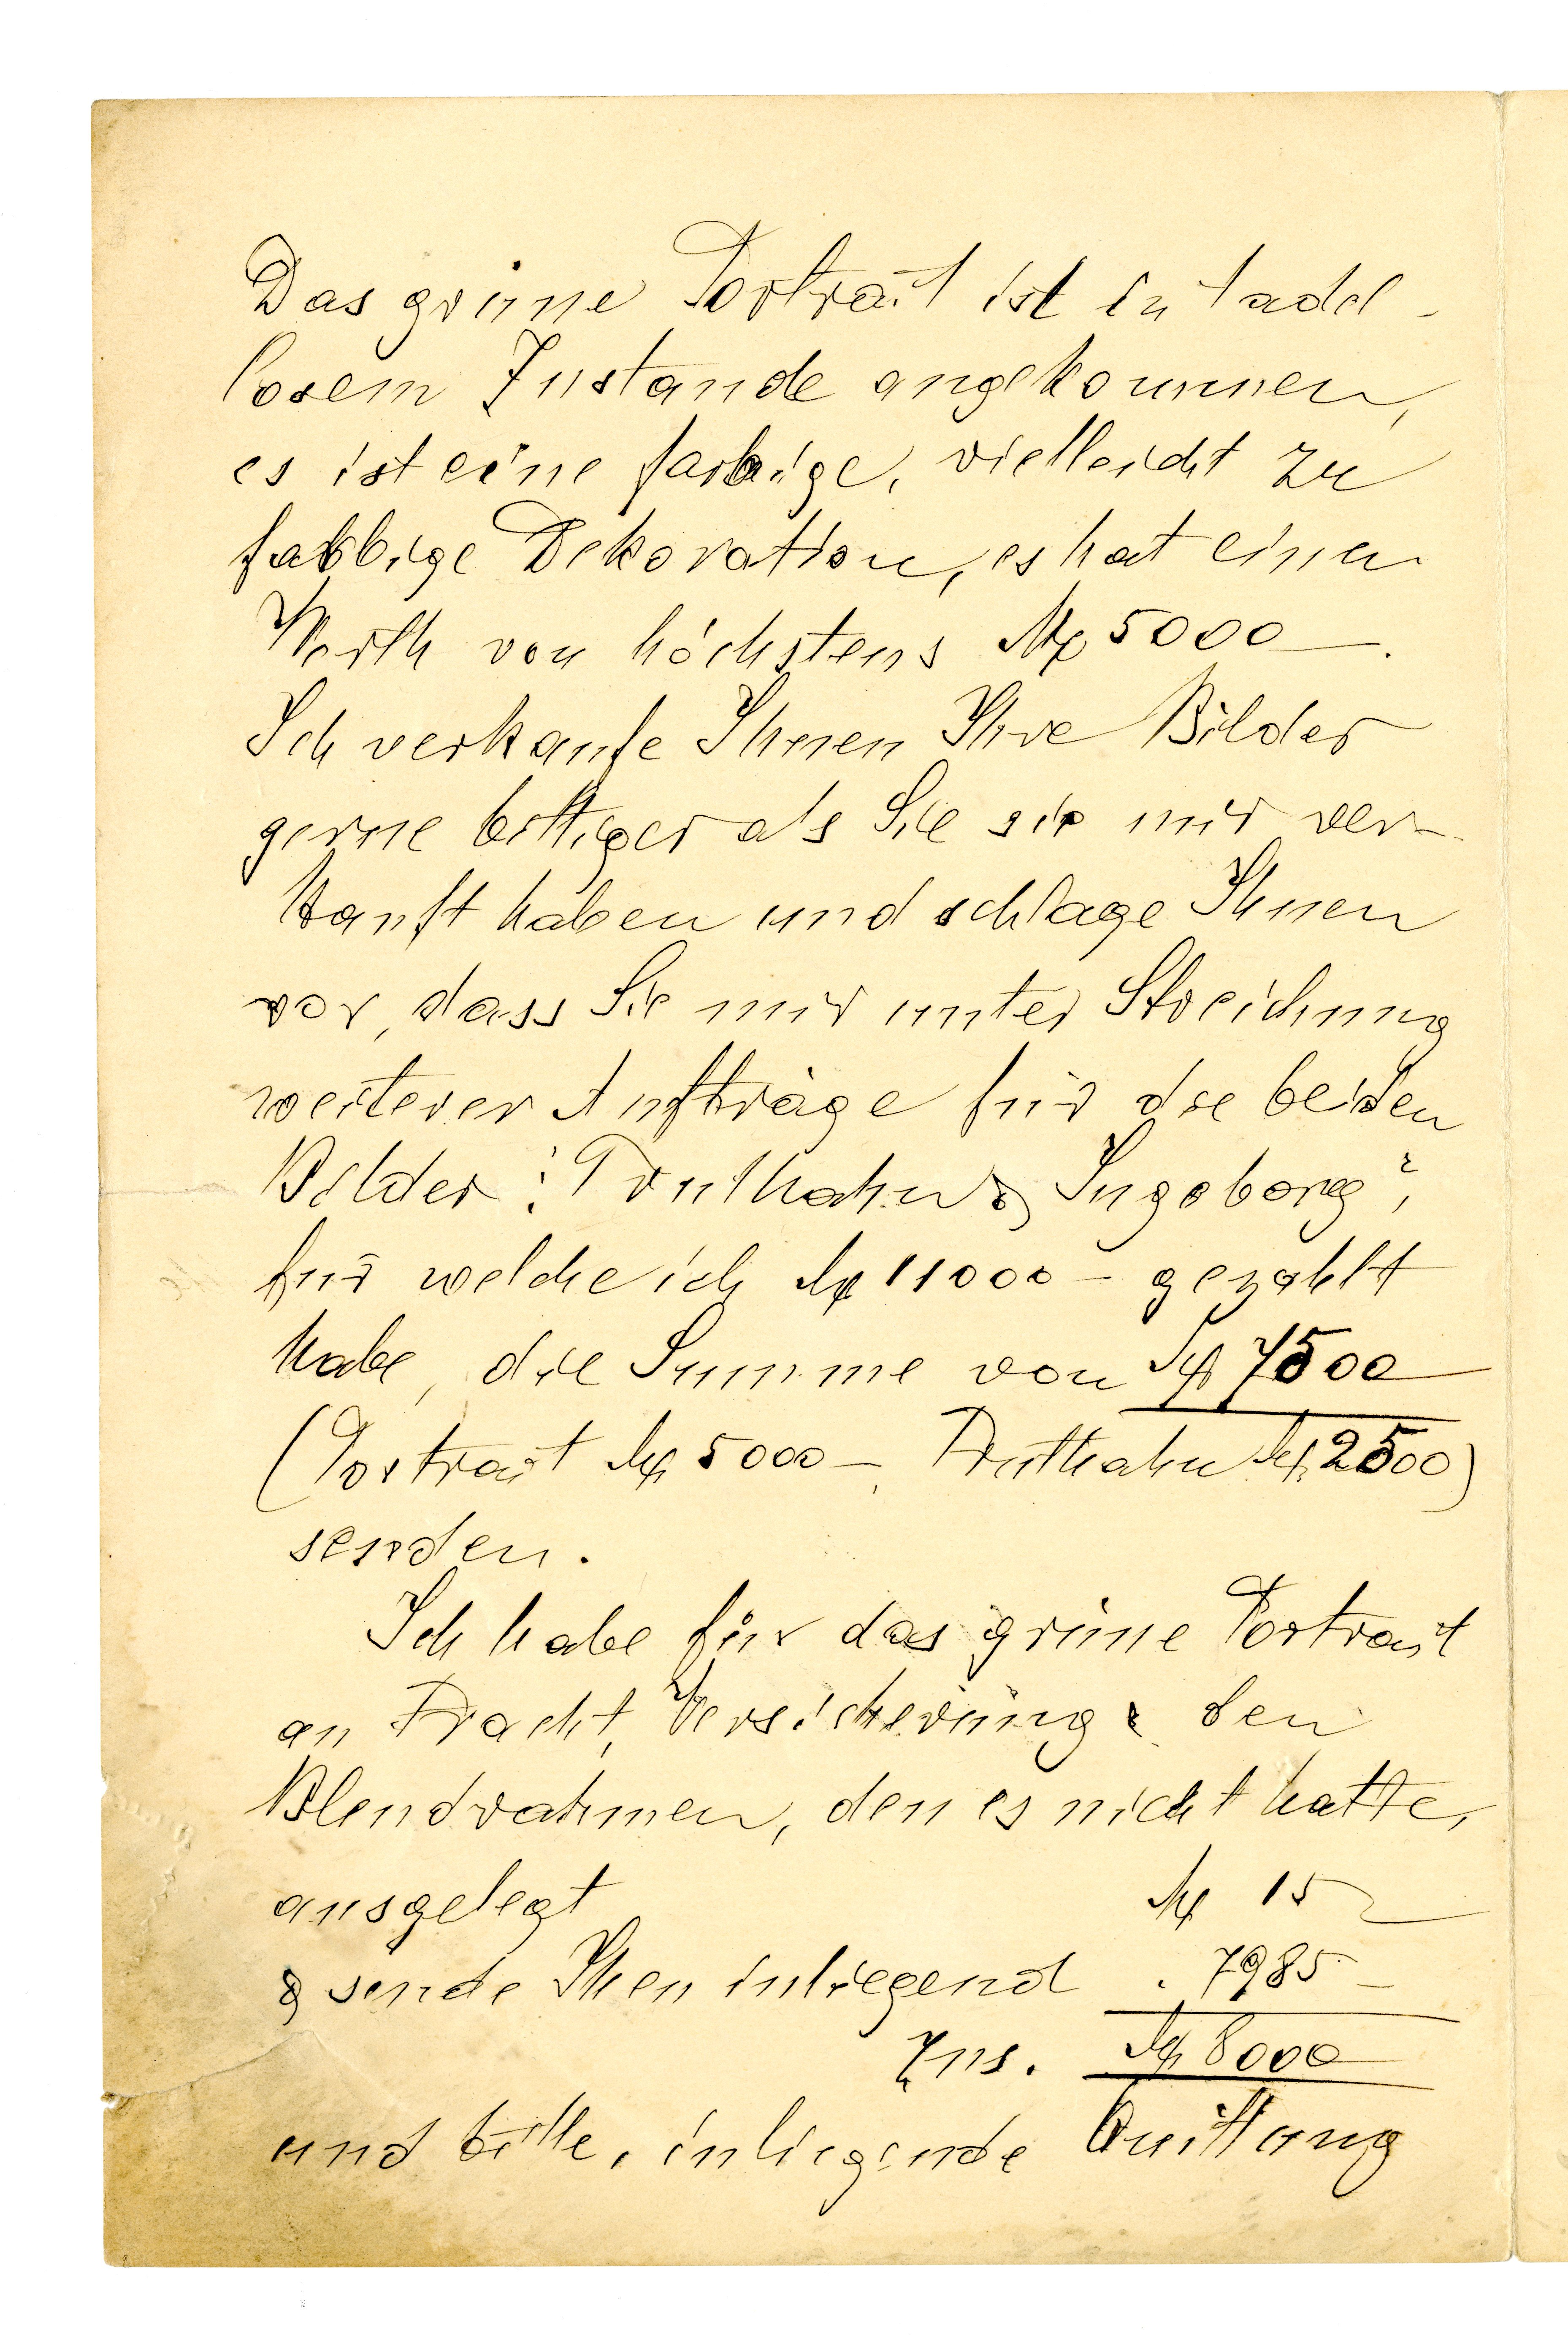 Das grüne Porträt ist in tadel-
losem Zustande angekommen,
es ist eine farbige, vielleicht zu
farbige Dekoration, es hat einen
Werth von höchstens M 5000 —.
Ich verkaufe Ihnen Ihre Bilder
gerne billiger als Sie sie mir ver-
kauft haben und schlage Ihnen
vor, dass Sie mir unter Streichung
weiterer Aufträge für die beiden
Bilder: "Truthahn & Ingeborg",
für welche ich M 11000 – gezahlt
habe, die Summe von M 7500 —
(Portrait M 5000 –, Truthahn M 2500)
senden.
Ich habe für das grüne Portrait
an Fracht, Versicherung & den
Blendrahmen, den es nicht hatte,
ausgelegt M 15 —
& sende Ihnen inliegend . 7985 –
Zus. M 8000 —
und bitte, inliegende Quittung